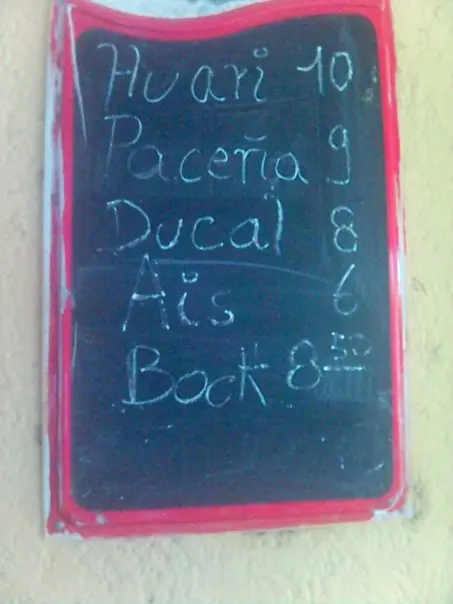 Huari 10
Paceña 9
Ducal 8
Ais 6
Bock 8 50